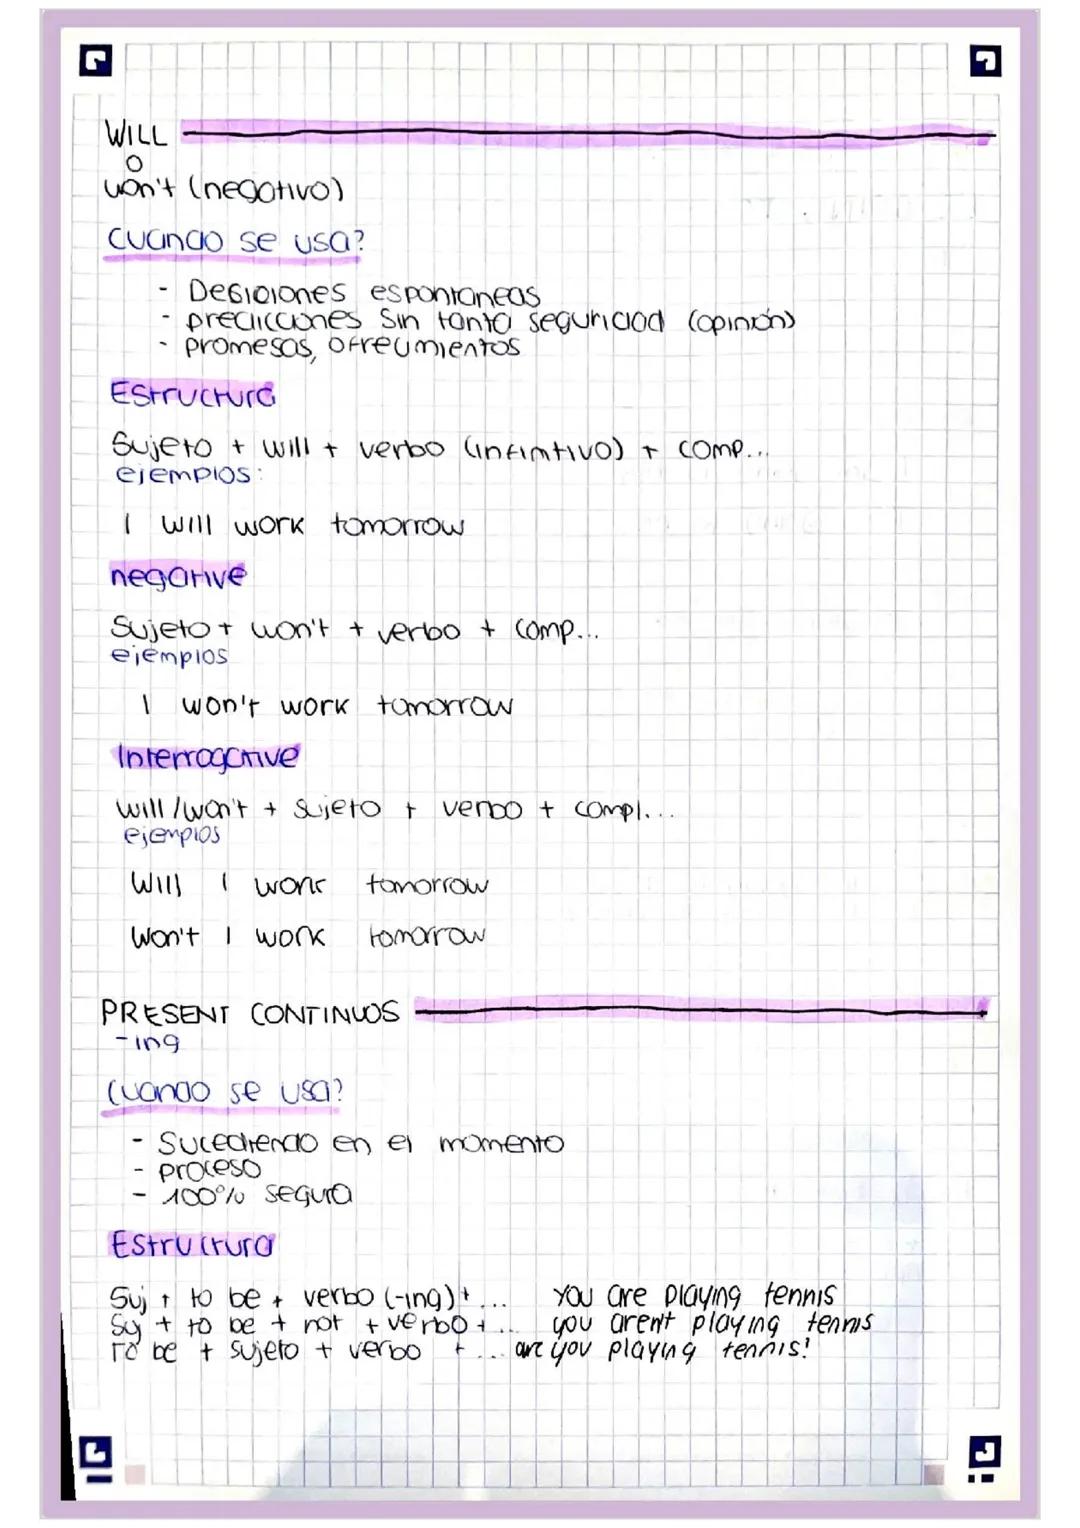 WILL
o
won't (negativo)
cuando se usa?
- Desiciones espontaneas
- predicciones sin tanta seguridad (opinión)
- promesas, ofrecimientos
Estructura
Sujeto + will + verbo (infinitivo) + comp...
ejemplos:
I will work tomorrow
negative
Sujeto + won't + verbo + comp...
ejemplos
I won't work tomorrow
Interrogative
will/won't + sujeto + verbo + compl...
ejemplos
Will I work tomorrow
Won't I work tomorrow
PRESENT CONTINUOS
-ing
Cuando se usa?
- Sucediendo en el momento
- proceso
- 100% segura
Estructura
Suj + to be + verbo (-ing) + ... you are playing tennis
Suj + to be + not + verbo + ... you aren't playing tennis
To be + sujeto + verbo + ... are you playing tennis?